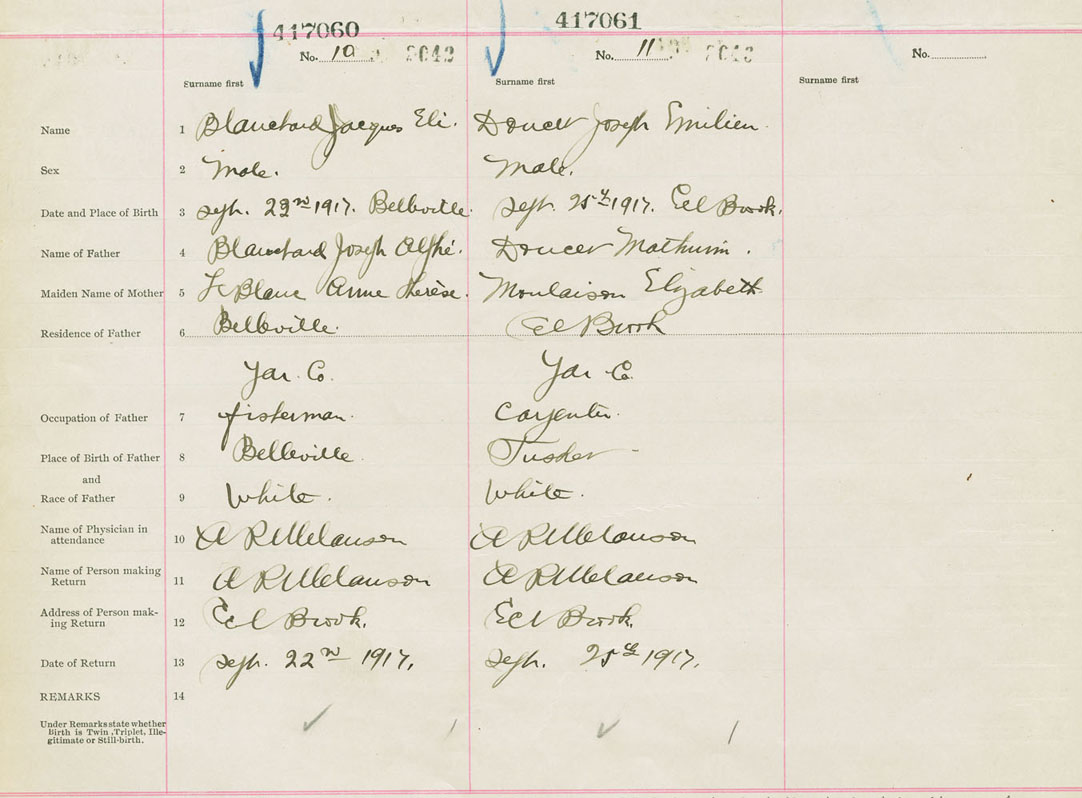 417060 417061
No. 10 2042 No. 11 2043 No.
Surname first Surname first Surname first
Name 1 Blanchard Jacques Eli. Doucet Joseph Emilien.
Sex 2 Male. Male.
Date and Place of Birth 3 Sept. 22nd 1917. Belleville. Sept. 25th 1917. Eel Brook.
Name of Father 4 Blanchard Joseph Alphé. Doucet Mathurin.
Maiden Name of Mother 5 LeBlanc Anne Therèse. Moulaison Elizabeth
Residence of Father 6 Belleville. Eel Brook
Yar. Co. Yar Co.
Occupation of Father 7 fisherman. Carpenter.
Place of Birth of Father 8 Belleville. Tusket -
and
Race of Father 9 White. White.
Name of Physician in
attendance 10 A R Melanson A R Melanson
Name of Person making
Return 11 A R Melanson A R Melanson
Address of Person mak-
ing Return 12 Eel Brook. Eel Brook.
Date of Return 13 Sept. 22nd 1917. Sept. 25th 1917.
REMARKS 14
Under Remarks state whether
Birth is Twin, Triplet, Ille-
gitimate or Still-birth.